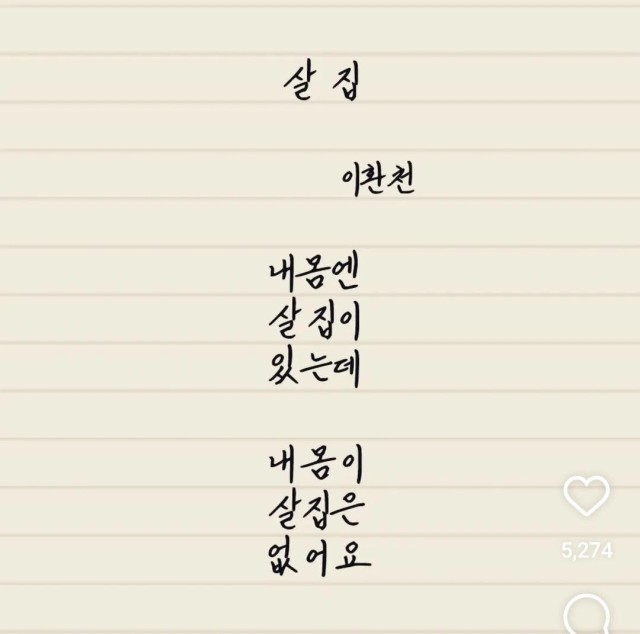 살 집
이환천
내몸엔
살집이
있는데
내몸이
살집은
없어요
5,274